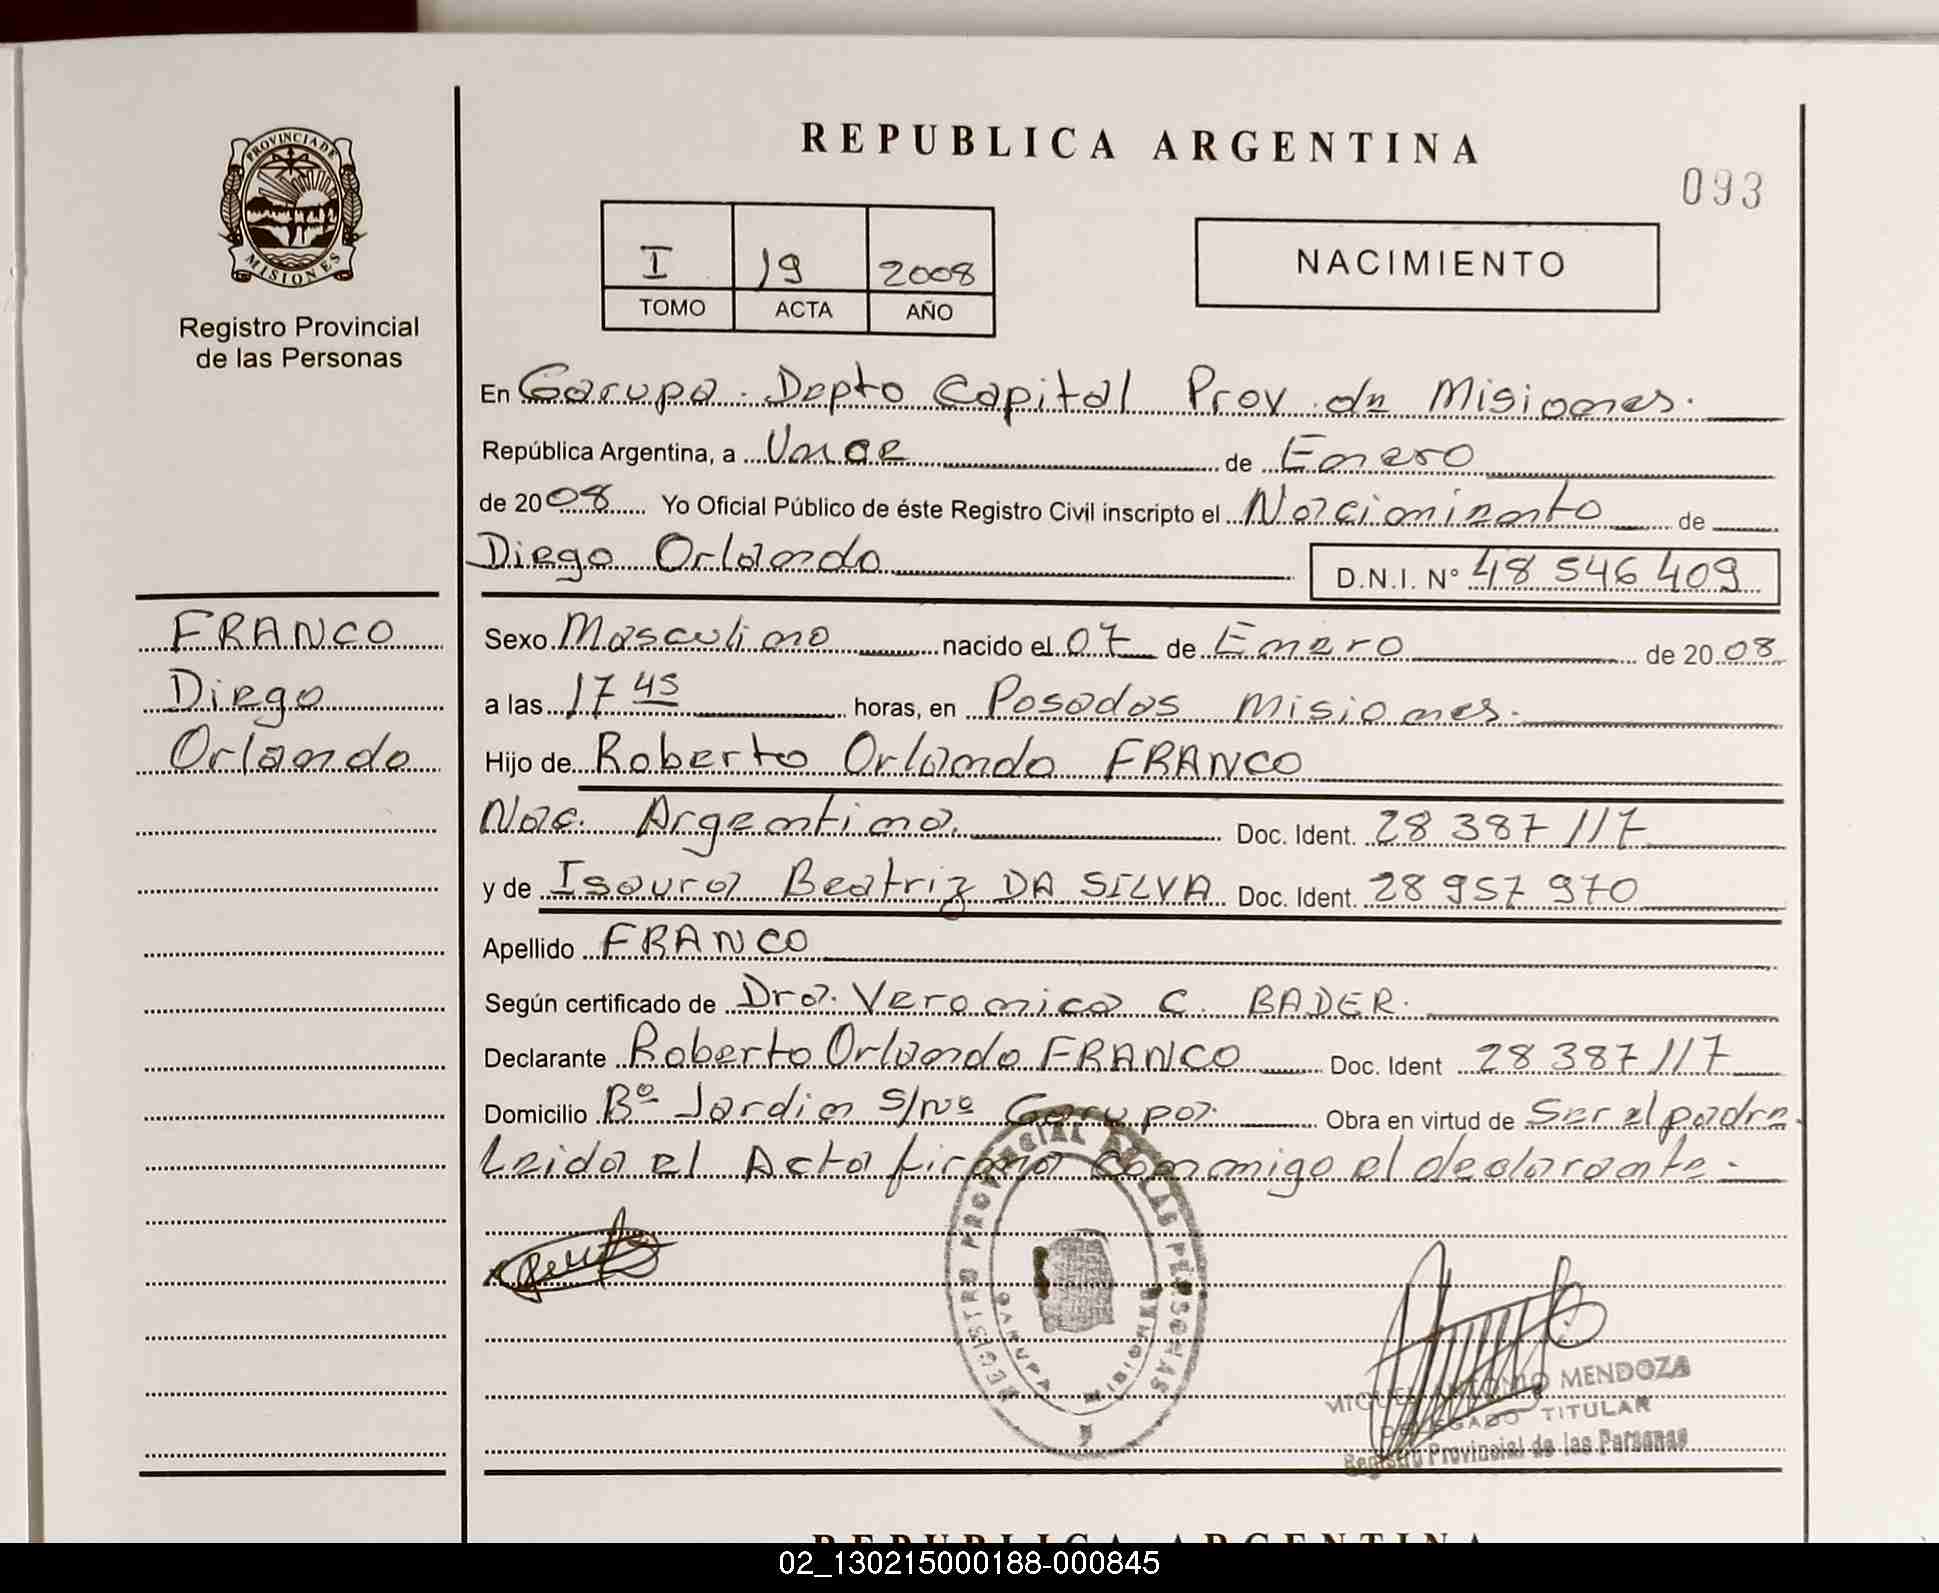 REPUBLICA ARGENTINA
093
PROVINCIA DE
MISIONES
Registro Provincial
de las Personas
I 19 2008
TOMO ACTA AÑO
NACIMIENTO
En Garupa. Depto Capital Prov. de Misiones.
República Argentina, a Once de Enero
de 2008 Yo Oficial Público de éste Registro Civil inscripto el Nacimiento de
Diego Orlando D.N.I. N° 48 546 409
FRANCO
Diego
Orlando
Sexo Masculino nacido el 07 de Enero de 2008
a las 17 45 horas, en Posadas Misiones.
Hijo de Roberto Orlando FRANCO
Nac. Argentina. Doc. Ident. 28 387 117
y de Isaura Beatriz DA SILVA Doc. Ident. 28 957 970
Apellido FRANCO
Según certificado de Dra. Veronica C. BADER.
Declarante Roberto Orlando FRANCO Doc. Ident 28 387 117
Domicilio Bº Jardin S/Nº Garupa. Obra en virtud de Ser el padre.
Leida el Acta firma conmigo el declarante.
REGISTRO PROVINCIAL DE LAS PERSONAS
GARUPA
MISIONES
MIGUEL ANTONIO MENDOZA
DELEGADO TITULAR
Registro Provincial de las Personas
REPUBLICA ARGENTINA
02_130215000188-000845